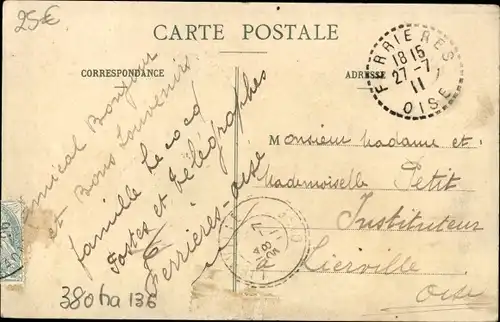 25€
CARTE POSTALE
CORRESPONDANCE
ADRESSE
FERRIERES
18 15
27-7
11
OISE
Amical Bonjour
et Bons Souvenirs
famille Lecocq
Postes et Télégraphes
Ferrières-oise
Monsieur Madame et
Mademoiselle Petit
Instituteur
à Lierville
Oise
380ha 136